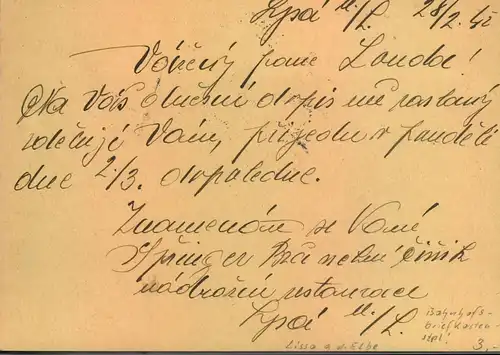 Lysá n./L. 28/2. 42
Vážený pane Londa!
Na Váš dnešní dopis mě zaslaný
sděluji Vám, přijedu v pondělí
dne 2/3. odpoledne.
Znamenám se Vámi
Springer
nádražní restaurace
Lysá n./L.
Bahnhofs-
briefkasten
stpl!
Lissa a. d. Elbe
3,-